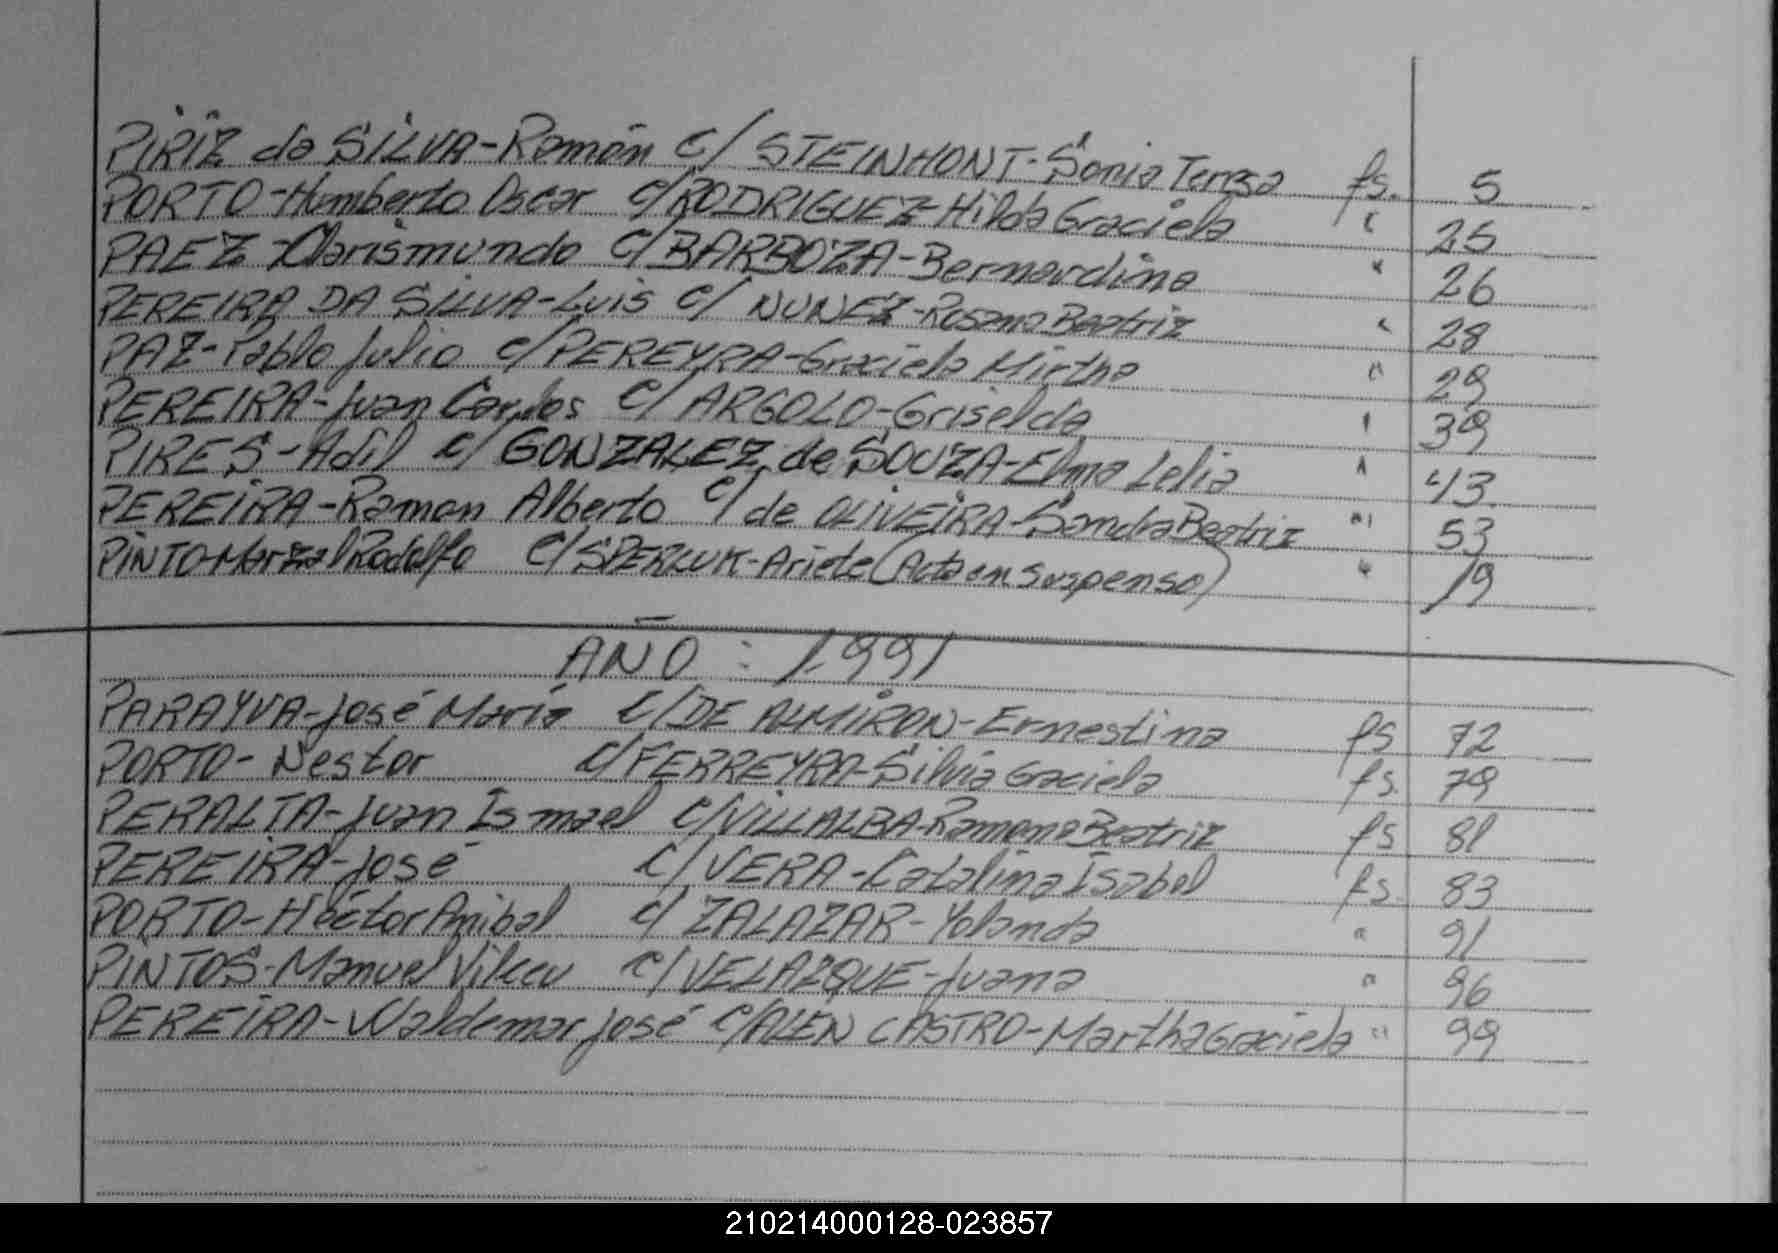 PIRIZ da SILVA-Ramón c/ STEINHONT-Sonia Teresa fs. 5
PORTO-Humberto Oscar c/RODRIGUEZ-Hilda Graciela " 25
PAEZ-Clarismundo c/BARBOZA-Bernardina " 26
PEREIRA DA SILVA-Luis c/ NUNEZ-Rosana Beatriz " 28
PAZ-Pablo Julio c/PEREYRA-Graciela Mirtha " 29
PEREIRA-Juan Carlos c/ ARGOLO-Griselda " 39
PIRES-Adil c/ GONZALEZ de SOUZA-Elma Lelia " 43
PEREIRA-Ramon Alberto c/ de OLIVEIRA-Sandra Beatriz " 53
PINTO-Marzal Rodolfo c/SPERLUK-Ariete (Acta en suspenso) " 19
AÑO : 1991
PARAYVA-José María c/DE ALMIRON-Ernestina fs 72
PORTO-Nestor c/FERREYRA-Silvia Graciela fs. 79
PERALTA-Juan Ismael c/VILLALBA-Ramona Beatriz fs 81
PEREIRA-José c/VERA-Catalina Isabel fs. 83
PORTO-Héctor Anibal c/ ZALAZAR-Yolanda " 91
PINTOS-Manuel c/VELAZQUE-Juana " 96
PEREIRA-Waldemar José c/ALEN CASTRO-Martha Graciela " 99
210214000128-023857